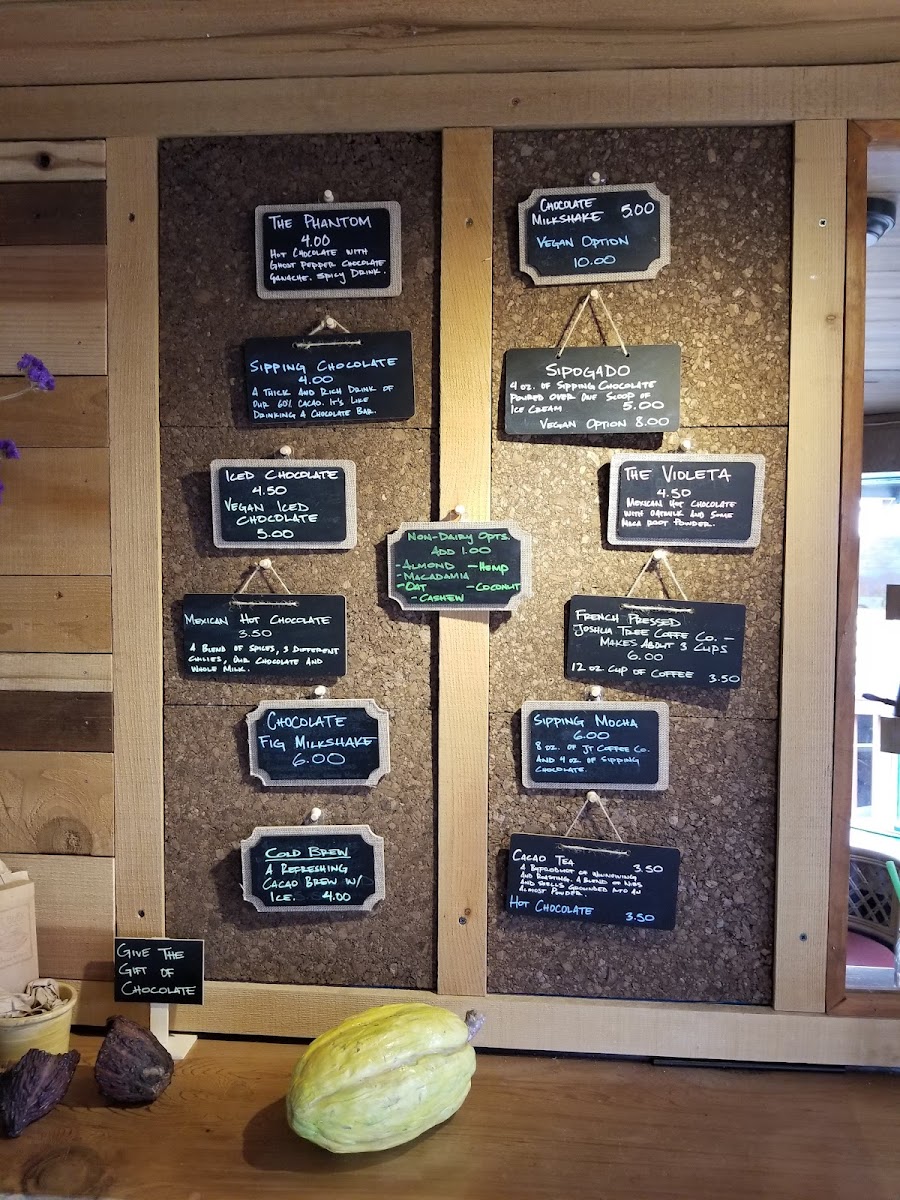 THE PHANTOM
4.00
HOT CHOCOLATE WITH
GHOST PEPPER CHOCOLATE
GANACHE. SPICY DRINK.
SIPPING CHOCOLATE
4.00
A THICK AND RICH DRINK OF
OUR 60% CACAO. IT'S LIKE
DRINKING A CHOCOLATE BAR.
ICED CHOCOLATE
4.50
VEGAN ICED
CHOCOLATE
5.00
MEXICAN HOT CHOCOLATE
3.50
A BLEND OF SPICES, 3 DIFFERENT
CHILIES, OUR CHOCOLATE AND
WHOLE MILK.
CHOCOLATE
FIG MILKSHAKE
6.00
COLD BREW
A REFRESHING
CACAO BREW W/
ICE. 4.00
GIVE THE
GIFT OF
CHOCOLATE
NON-DAIRY OPTS.
ADD 1.00
-ALMOND -HEMP
-MACADAMIA
-OAT -COCONUT
-CASHEW
CHOCOLATE
MILKSHAKE 5.00
VEGAN OPTION
10.00
SIPOGADO
4 OZ. OF SIPPING CHOCOLATE
POURED OVER ONE SCOOP OF
ICE CREAM 5.00
VEGAN OPTION 8.00
THE VIOLETA
4.50
MEXICAN HOT CHOCOLATE
WITH OATMILK AND SOME
MACA ROOT POWDER.
FRENCH PRESSED
JOSHUA TREE COFFE CO. -
MAKES ABOUT 3 CUPS
6.00
12 OZ CUP OF COFFEE 3.50
SIPPING MOCHA
6.00
8 OZ. OF JT COFFEE CO.
AND 4 OZ. OF SIPPING
CHOCOLATE.
CACAO TEA 3.50
A BIPRODUCT OF WINNOWING
AND ROASTING. A BLEND OF NIBS
AND SHELLS GROUNDED INTO AN
ALMOST POWDER.
HOT CHOCOLATE 3.50